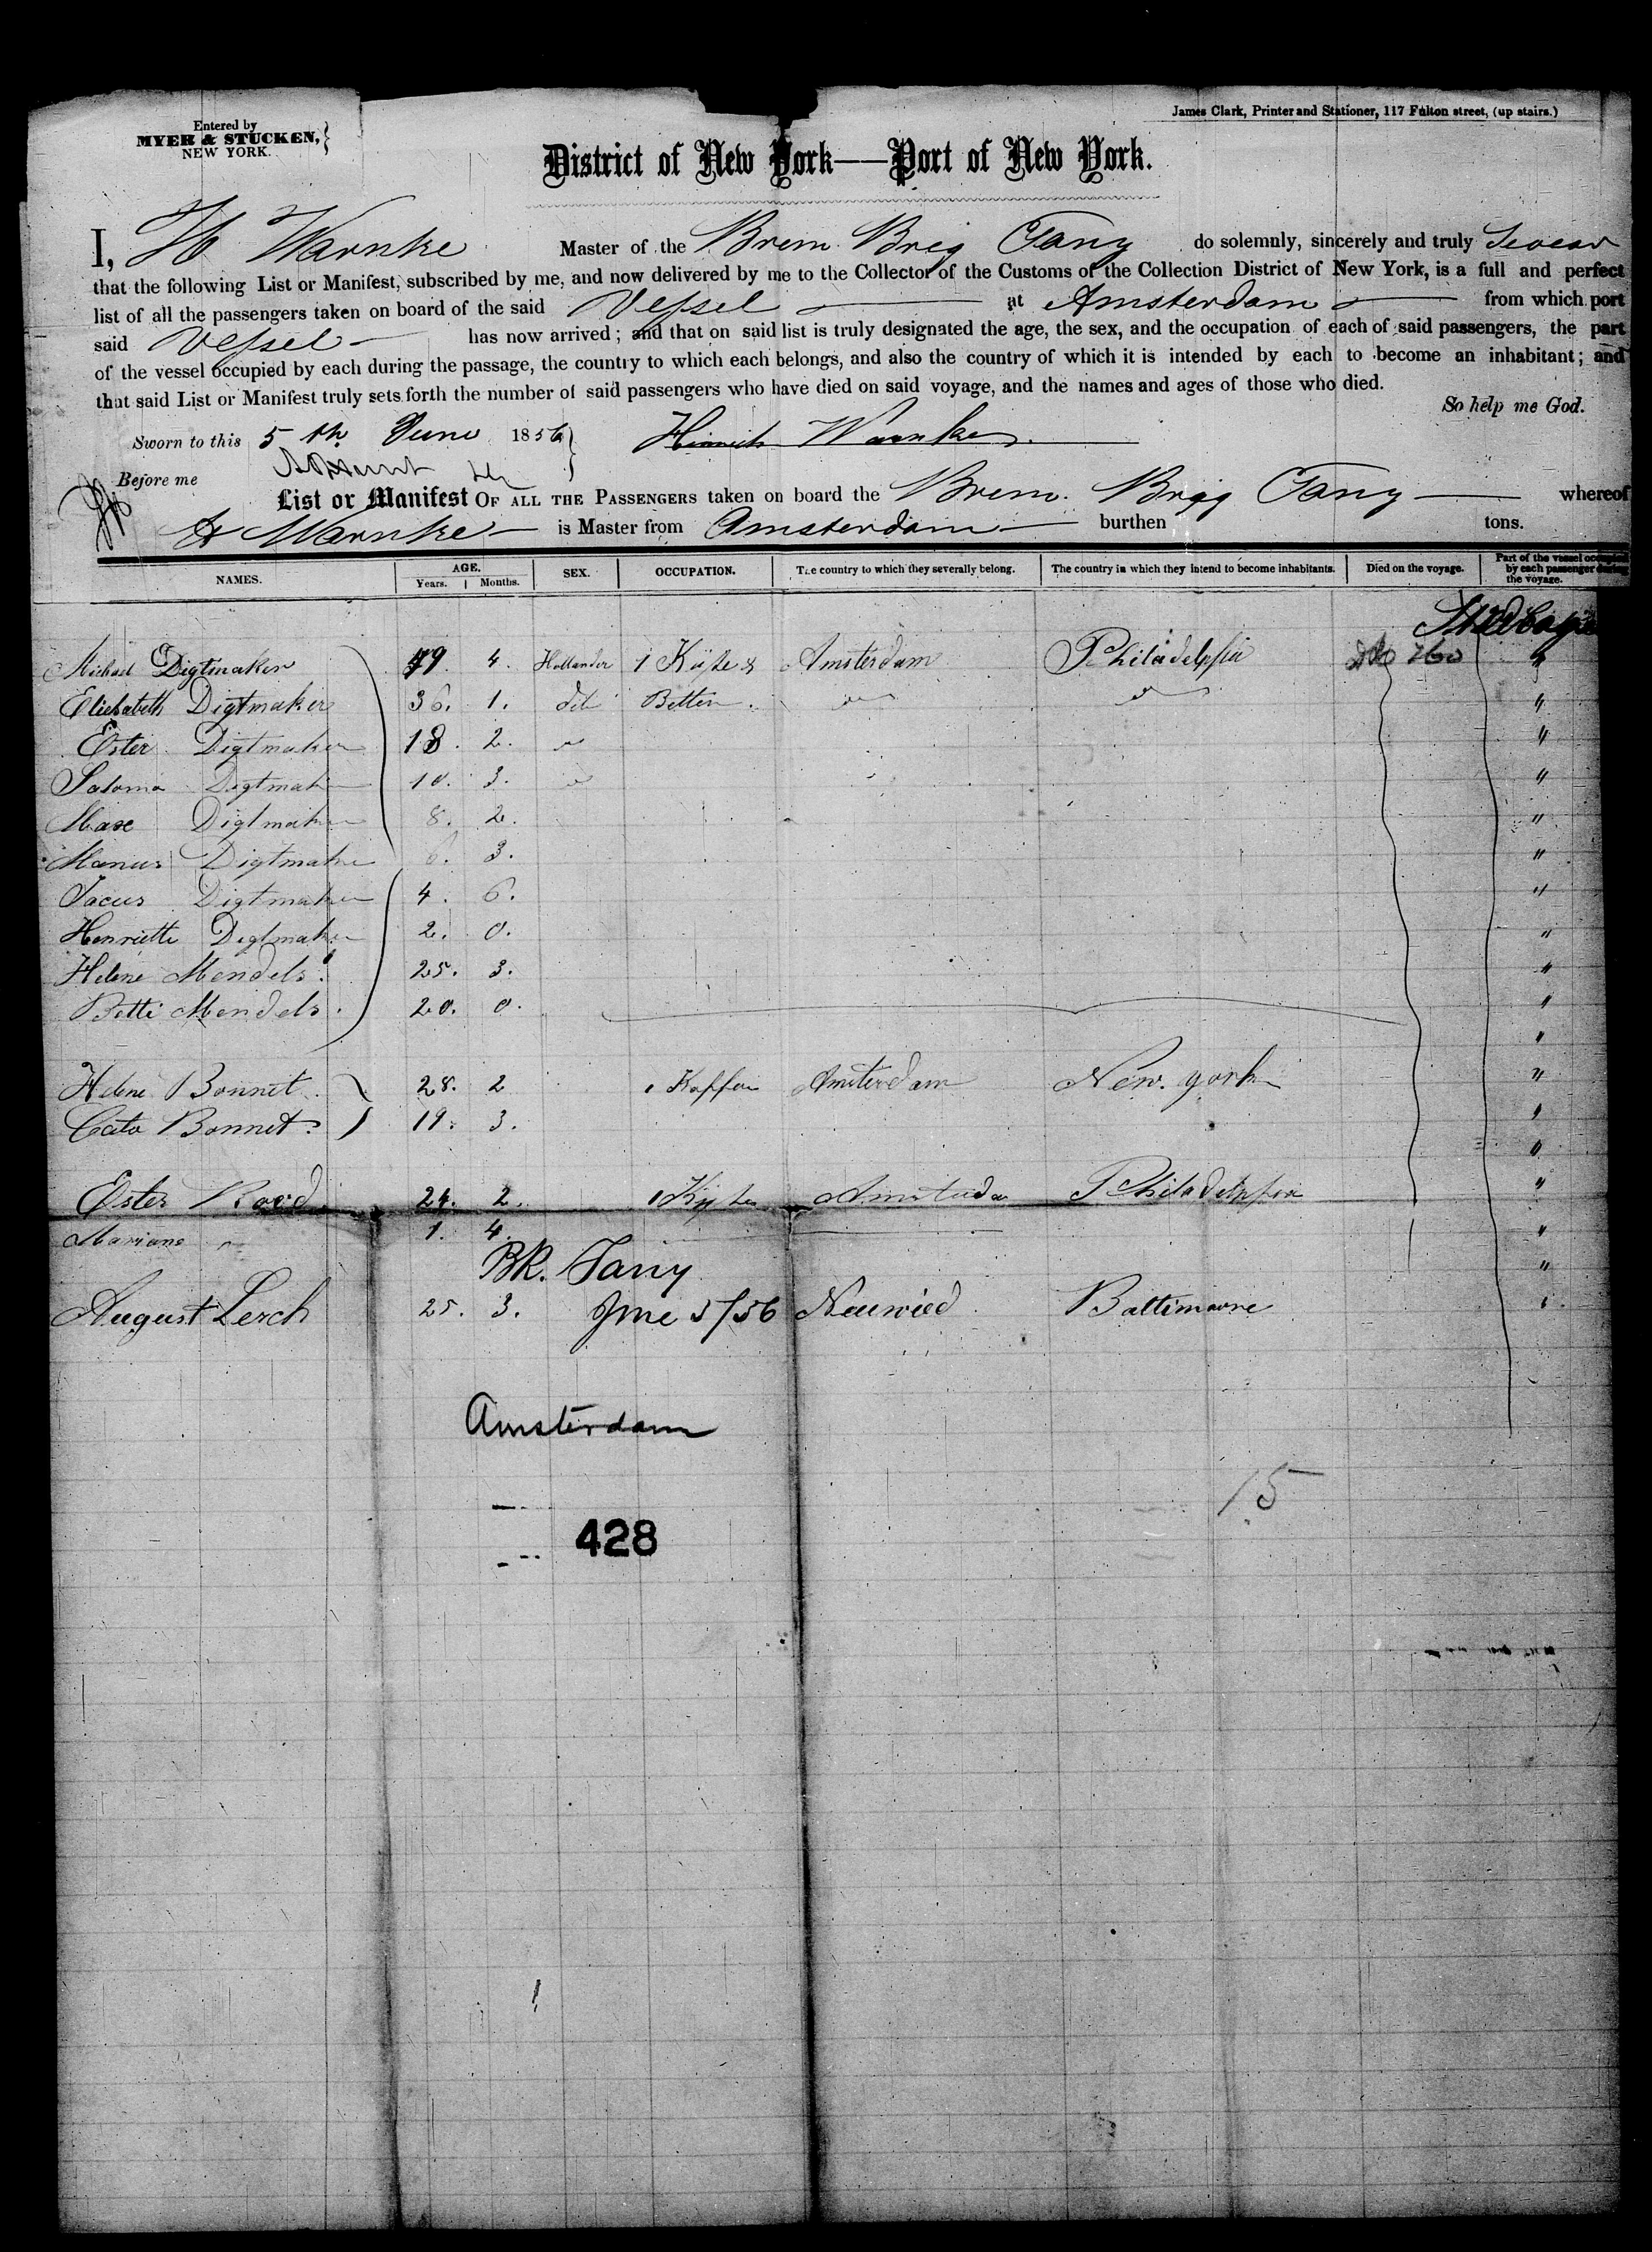 James Clark, Printer and Stationer, 117 Fulton street, (up stairs.)
Entered by
MYER & STUCKEN,
NEW YORK.
District of New York——Port of New York.
I, H Warnke Master of the Brem Brig Fany do solemnly, sincerely and truly Swear
that the following List or Manifest, subscribed by me, and now delivered by me to the Collector of the Customs of the Collection District of New York, is a full and perfect
list of all the passengers taken on board of the said Vessel at Amsterdam from which port
said Vessel has now arrived; and that on said list is truly designated the age, the sex, and the occupation of each of said passengers, the part
of the vessel occupied by each during the passage, the country to which each belongs, and also the country of which it is intended by each to become an inhabitant; and
that said List or Manifest truly sets forth the number of said passengers who have died on said voyage, and the names and ages of those who died.
So help me God.
Sworn to this 5 th June 1856 Hinrich Warnke
Before me
List or Manifest OF ALL THE PASSENGERS taken on board the Brem. Brigg Fany whereof
H Warnke is Master from Amsterdam burthen tons.
NAMES. AGE. Years. Months. SEX. OCCUPATION. The country to which they severally belong. The country in which they intend to become inhabitants. Died on the voyage. Part of the vessel occupied by each passenger during the voyage.
Michael Digtmaker 49. 4. Hollander 1 Amsterdam Philadelphia
Eliehabeth Digtmaker 36. 1. dito Betten. " "
Ester Digtmaker 18. 2. " "
Saloma Digtmaker 10. 3. " "
Maxe Digtmaker 8. 2. "
Manus Digtmaker 6. 3. "
Jacus Digtmaker 4. 6. "
Henriette Digtmaker 2. 0. "
Helene Mendels. 25. 3. "
Betti Mendels. 20. 0. "
"
Helene Bonnet. 28. 2 1 Koffer Amsterdam New-york "
Cato Bonnet. 19. 3. "
"
Ester Rood 24. 2. 1 Amsterdam Philadelphia "
Mariane " 1. 4. "
BR. Fany "
August Lerch 25. 3. June 5/56 Neuwied Baltimore "
Amsterdam
15
428